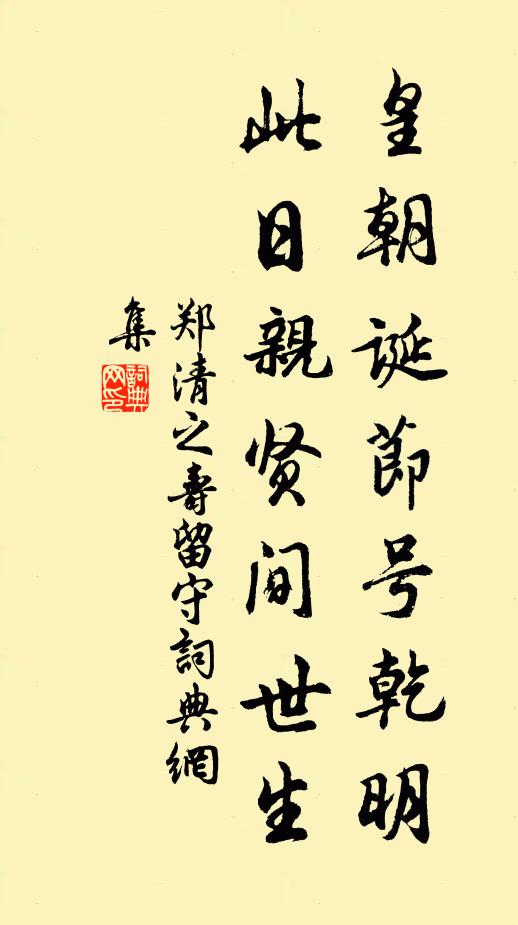 皇朝诞节号乾明
此日親贤间世生
郑清之壽留守詞典網
集
詞典网印